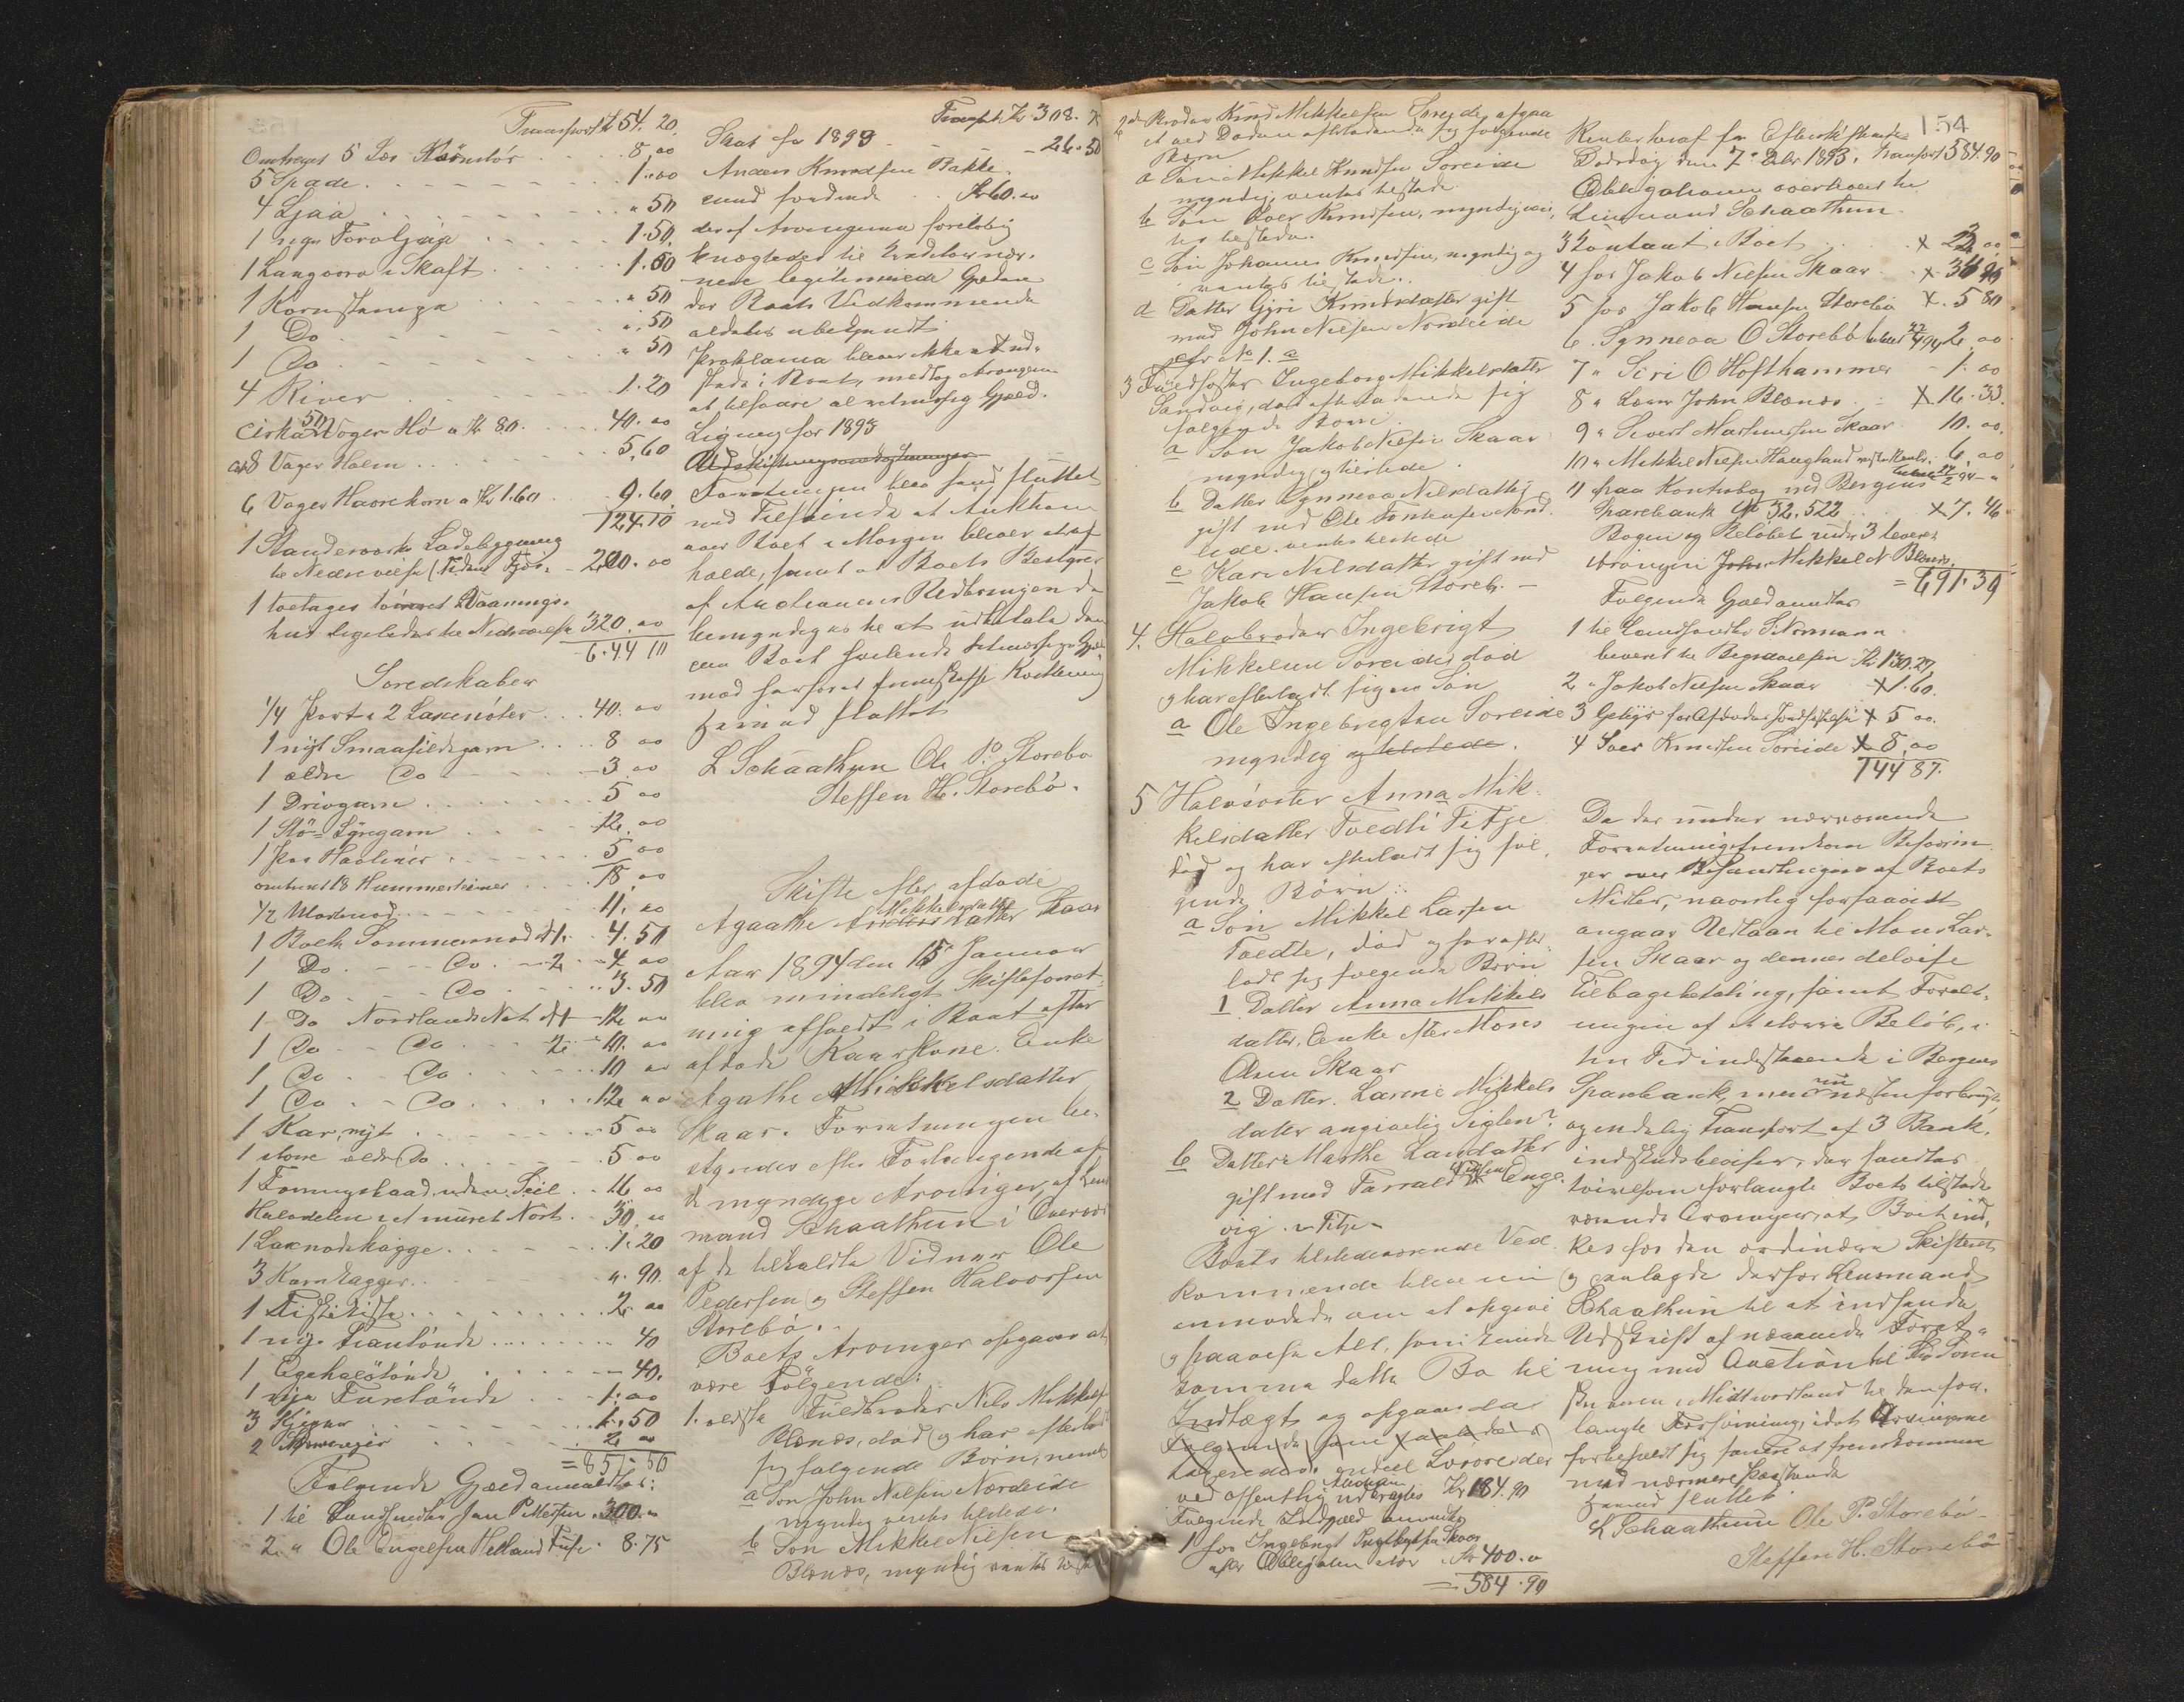 Transport Kr 54. 20.
Omtrent 5 Læs . . . 8 00
5 Spade . . . 1.00
4 Ljaa . . . " 50
1 nye Torvljaa . . . 1.50
1 Langorv i Skaft . . . 1.50
1 Kornstange . . . " 50
1 Do . . . " 50
1 Do . . . " 50
4 River . . . 1.20
Cirka 50 Voger Hø a Kr 80. . . . 40. 00
8 Vager Halm . . . 5,60
6 Vager Havrekorn a Kr 1.60 . . . 9.60
124.10
1 Standeværks Ladebygning
til Nedrivelse (. . . Fjøs. - 200. 00
1 toetages tømret Vaanings-
hus ligeledes til Nedrivelse 320. 00
644 10
Søredskaber
1/4 Part i 2 Laxenøter . . . 40. 00
1 nyt Smaasildegarn . . . 8 00
1 ældre Do . . . 3 00
1 Drivgarn . . . 5 00
1 Stø- Lyregarn . . . 12. 00
1 Par Havliner . . . 5 00
omtrent 18 Hummerteiner . . . 18, 00
1/2 Mortnod . . . 11. 00
1 Bolk Sommernod № 1. . . 4. 50
1 Do. - - Do. - 2 - 4 00
1 Do. - - Do . . . 3. 50
1 Do Nordlands Not № 1 - 12 00
1 Do - - Do . . 2. - 10. 00
1 Do - - Do . . . 10 00
1 Do - - Do . . . 12 00
1 Kar, nyt . . . 5 00
1 større ældre Do . . . 5 00
1 Færingsbaad uden Seil . . 16 00
Halvdelen i et muret Nøst . . 30. 00
1 Laxnodskagge . . . 1. 20
3 Kornkagger . . . ". 90.
1 Fiskekiste . . . 2. 00
1 nye Trantønde . . . 40
1 Egehalvtønde . . . 40.
1 nye Furetønde . . . 1. 00
3 Kjerner . . . 1. 50
2 . . . 2 00
= 851. 50
Følgende Gjæld anmeldtes:
1 til Landhandler Jan Pettersen . 300. "
2. " Ole Engelsen Helland Tufte . 8.75
Transpt. Kr 308. 75
Skat for 1893 - - - 26.50
Anders Knudsen Bakke
end fordrende . . Kr 60. 00
der af Arvingerne foreløbig
benægtedes til Kreditor nær-
mere legitimerede Gjælden
der Boets Vedkommende
aldeles ubekjendt
Proklama bliver ikke at ud-
stede i Boet, medtog Arvingerne
at tilsvare al retmæssig Gjæld.
Ligning for 1893
Forretningen blev hermed sluttet
med Tilføiende at Auktion
over Boet i Morgen bliver at af-
holde, samt at Boets Bestyrer
af Auctionens Udbringende
bemyndiges til at udbetale den
den Boet hvilende retmæssige Gjæld
mod forsvarlig Kvittering
hermed sluttet
L Schaathun Ole P. Storebø
Steffen H. Storebø.
Skifte efter afdøde
Mikkelsdatter
Agaathe Anders datter Skaar
Aar 1894 den 15de Januar
blev mindeligt Skifteforret-
ning afholdt i Boet efter
afdøde Kaarkone. Enke
Agathe Mikkelsdatter
Skaar. Forretningen be-
styredes efter Forlangende af
de myndige Arvinger af Lens-
mand Schaathun i Overvær
af de tilkaldte Vidner Ole
Pedersen og Steffen Halvorsen
Storebø.
Boets Arvinger opgaves at
være Følgende:
1. ældste Fuldbroder Nils Mikkels
Blænes, død og har efterladt
sig følgende Børn, nemlig
a Søn John Nilsen Nordeide
myndig ventes tilstede.
b Søn Mikkel Nilsen
Blænes, myndig ventes tilst
154
2de Broder Knud Mikkelsen Soreide, opgaa
et ved Døden efterladende sig følgende
Børn
a Søn Mikkel Knudsen Soreide
myndig, ventes tilstede
b Søn Iver Knudsen, myndig ven-
tes tilstede.
c Søn Johannes Knudsen, myndig og
ventes tilstede.
d Datter Gjøri Knudsdatter gift
med John Nilsen Nordeide
jefr No 1. a
3 Fuldsøster Ingeborg Mikkelsdatter
Sandvig, død efterladende sig
følgende Børn
a Søn Jakob Nilsen Skaar
myndig og tilstede.
b Datter Synneva Nilsdatter
gift med Ole Nord-
eide. ventes tilstede
c Kari Nilsdatter gift med
Jakob Hansen Storeb. -
4. Halvbroder Ingebrigt
Mikkelsen Soreide død
og har efterladt sig en Søn
a Ole Ingebrigtsen Soreide
myndig og tilstede.
5 Halvsøster Anna Mik-
kelsdatter Tvedti Fitje
død og har efterladt sig føl-
gende Børn:
a Søn Mikkel Larsen
Tvedte, død og har efter-
ladt sig følgende Børn
1. Datter Anna Mikkels
datter, Enke efter Mons
Olsen Skaar
2 Datter. Larine Mikkels
datter angivelig Siglen?
b Datter Marthe Larsdatter
gift med Farrald Enge-
vig. Fitje
Boets tilstedeværende Ved-
kommende blev nu
anmodede om at opgive
og paavise Alt, som kunde
komme dette Bo til
Indtægt og opgaves da
følgende som
endel Løsøre der
ved offentlig Auktion udbragtes Kr 184. 90
Følgende Indgjæld anmeldes
1 hos Ingebrigt Skaar
efter Obligation stor . Kr 400. 00
= 584. 90
Renter heraf fra Efterskiftende
Dødsdag den 7de Debr 1893. Transport 584. 90
Obligationen overleveret til
Lensmand Schaathun.
3 Contant i Boet . . . x 23 00
4 hos Jakob Nilsen Skaar . . x 36 40
5 hos Jakob Hansen Storebø x. 5 80
6. " Synneva O Storebø 2 00
7 " Siri O Hofthammer - 1. 00
8 " Leur John Blænes . - x 16. 33.
9 " Sivert Martinussen Skaar . 10. 00.
10 " Mikkel Nilsen Haugland 6 00
11 paa Kontrabog ved Bergens
Sparebank № 52.522 . . x 7. 46
Bogen og Beløbet under 3 leveret
Arvingen Mikkel N Blænes.
= 691. 39
Følgende Gjæld anmeldtes
1 til Landhandler S. Normann
leveret til Begravelsen Kr 130. 27
2 " Jakob Nilsen Skaar x 1. 60.
3 Gebyr for Afdødes Jordfæstelse x 5 00.
4 Iver Knudsen Soreide x 8. 00
144 87.
Da der under nærværende
Forretning fremkom Besværin-
ger over Behandlingen af Boets
Midler, navnlig forsaavidt
angaar Udlaan til Mons Lar-
sen Skaar og dennes delvise
Tilbagebetaling, samt Forvalt-
ningen af et større Beløb, i
sin Tid indestaaende i Bergens
Sparebank, men nu næsten forbrugt,
og endelig Transport af 3 Bank-
indskudsbeviser, der fandtes
tvivlsom forlangte Boets tilstede-
værende Arvinger, at Boet ind-
kes for den ordinære Skifteret
og paalagde derfor Lensmand
Schaathun til at indsende
Udskrift af nærværende Forret-
ning med Auction til Hr. Soren-
skriveren i Midthordland til den for-
langte Forføining, idet Arvingerne
forbeholdt sig senere at fremkomme
med nærmere Paastande
hermed sluttet
L Schaathun Ole P. Storebø -
Steffen H. Storebø